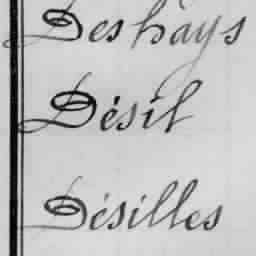 Deshays
Désil
Désilles